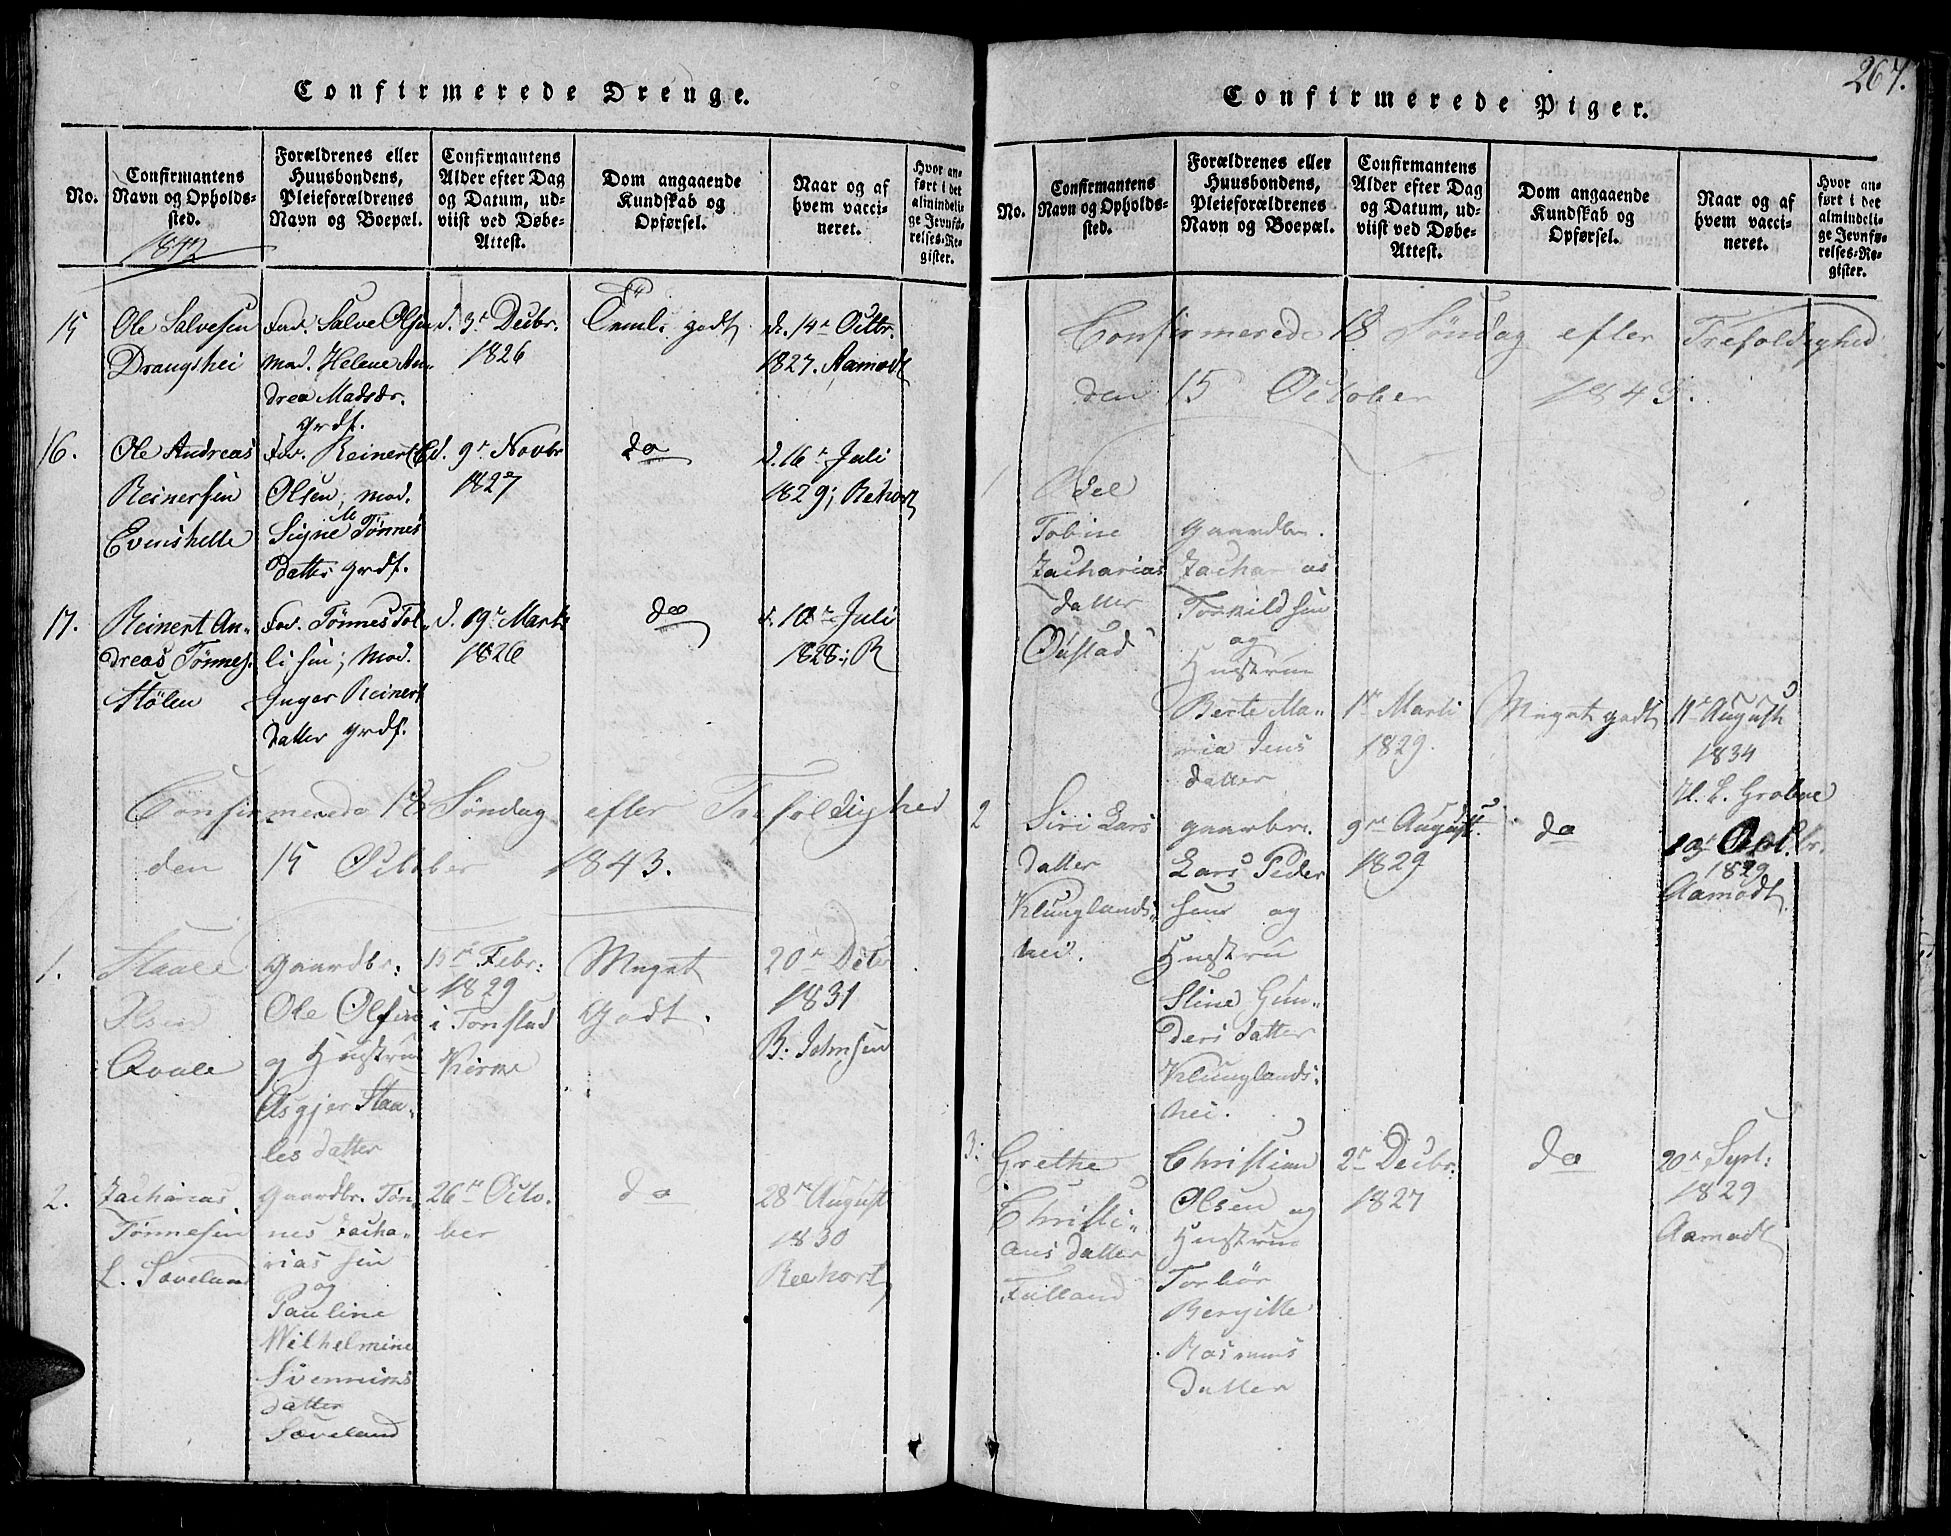 Confirmerede Drenge.
No.
Confirmantens
Navn og Opholds-
sted.
1842
Forældrenes eller
Huusbondens,
Pleieforældrenes
Navn og Boepæl.
Confirmantens
Alder efter Dag
og Datum, ud-
viist ved Døbe-
Attest.
Dom angaaende
Kundskab og
Opførsel.
Naar og af
hvem vacci-
neret.
Hvor an-
ført i det
almindeli-
ge Jevnfø-
relses-Re-
gister.
15
Ole Salvesen
Draugshei
Fad. Salve Olsen
Mod. Helene An-
drea Madsdr.
grdf.
d. 3e Decbr.
1826
Teml. godt
d. 14e Octbr.
1827. Aamodt
16.
Ole Andreas
Reinersen
Evenshelle
Fad. Reinert
Olsen, mod.
Signe Tønnes
datter grdf.
d. 9e Novbr
1827
do
d. 16e Juli
1829; Rehort
17.
Reinert An-
dreas Tønnes.
Stølen
Fad. Tønnes Tol-
lisen; Mod.
Inger Reinert
datter grdf.
d. 19e Marts
1826
do
d. 10e Juli
1828; R
Confirmerede 18 Søndag efter Trefoldighed
den 15 October 1843.
1.
Staale
Olsen
Qvale
Gaardbr:
Ole Olsen
og Hustru
Asgjer Staa-
les datter
15e Febr:
1829
i Tonstad
Kirke
Meget
Godt.
20e
1831
B. Johnsen
2.
Zacharias
Tønnesen
L. Sæveland
Gaardbr. Tøn-
nes Zacha-
rias sen
og
Pauline
Wilhelmine
Svennings
datter
Sæveland
26e Octo-
ber
do
28e August
1830
Reehort
267.
Confirmerede Piger.
No.
Confirmantens
Navn og Opholds-
sted.
Forældrenes eller
Huusbondens,
Pleieforældrenes
Navn og Boepæl.
Confirmantens
Alder efter Dag
og Datum, ud-
viist ved Døbe-
Attest.
Dom angaaende
Kundskab og
Opførsel.
Naar og af
hvem vacci-
neret.
Hvor an-
ført i det
almindeli-
ge Jevnfø-
relses-Re-
gister.
Confirmerede 18 Søndag efter Trefoldighed
den 15 October 1843.
1
Adel
Tobine
Zacharias
datter
Øustad
Gaardbr.
Zacharias
Torkildsen
og
Hustru
Berte Ma-
ria Jens
datter
1e Marti
1829.
Meget godt
11e August
1834
H. L. Grobue
2
Siri Lars
datter
Klunglands-
hei.
gaarbr.
Lars Peder
sen og
Hustru
Stine Gun-
ders datter
Klunglands-
hei.
9e August.
1829
do
Octbr.
1829
Aamodt
3.
Grethe
Christi-
ans datter
Fulland
Christian
Olsen og
Hustru
Torbør
Bergitte
Rasmus
datter
2e Decbr:
1827
do
20e Sept:
1829
Aamodt